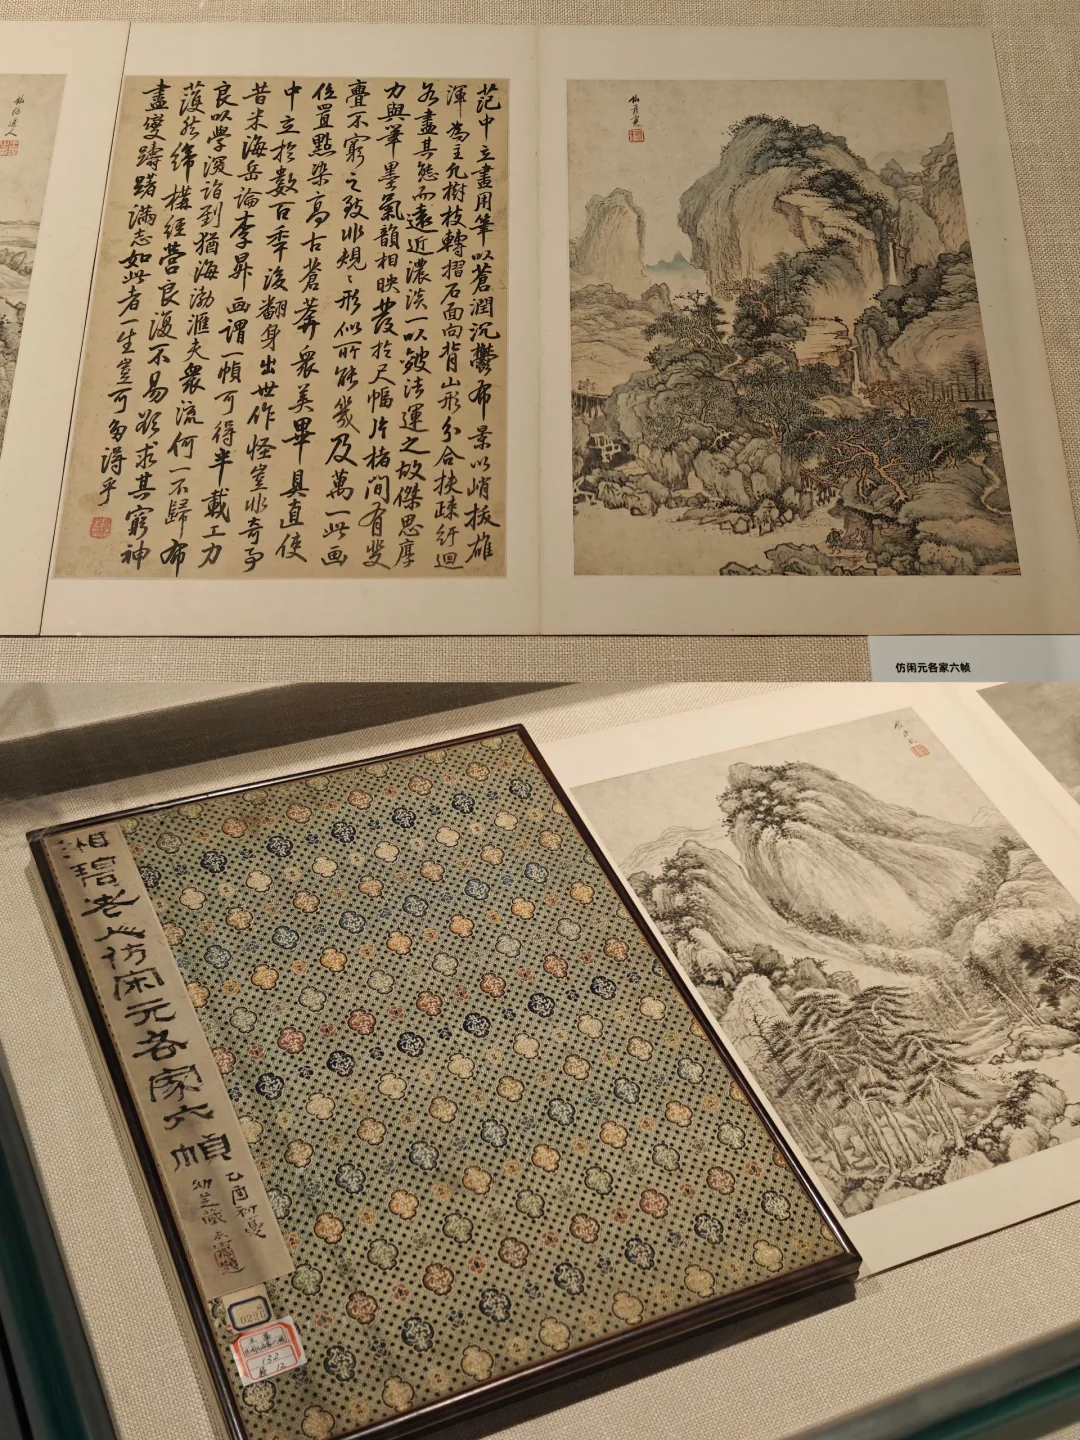 范中立畫用筆以蒼潤沉鬱布景以峭拔雄
渾為主凡樹枝轉摺石面向背山形分合扶疎紆迴
各盡其態而遠近濃淡一以皴法運之故傑思摩
力與筆墨氣韻相映發於尺幅片楮間有斐
亹不窮之致非規〻形似所能幾及萬一此画
位置點染高古蒼莽衆美畢具直使
中立於數百年後翻身出世作怪豈非奇事
昔米海岳論李昇画謂一幀可得半載工力
良以学深詣到猶海渤滙夫衆流何一不歸布
締構經營良復不易欲求其窮神
盡變躊躇滿志如此者一生豈可多得乎
仿闲元各家六帧
湘碧老人仿闲元各家六幀
乙酉初夏
幼芝藏
132